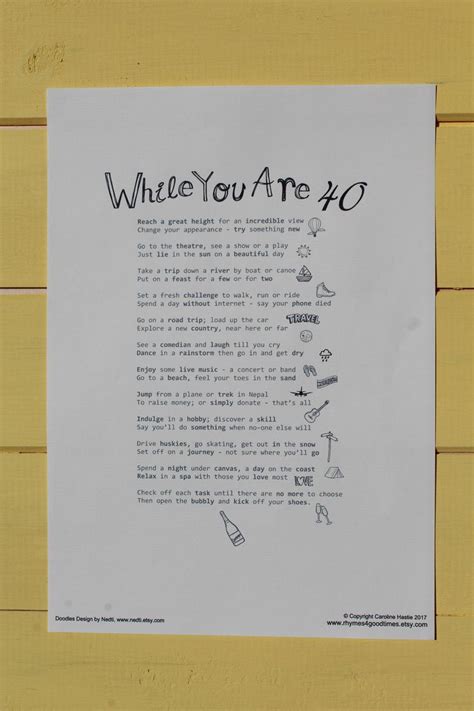 While You Are 40
Reach a great height for an incredible view
Change your appearance - try something new
Go to the theatre, see a show or a play
Just lie in the sun on a beautiful day
Take a trip down a river by boat or canoe
Put on a feast for a few or for two
Set a fresh challenge to walk, run or ride
Spend a day without internet - say your phone died
Go on a road trip; load up the car
TRAVEL
Explore a new country, near here or far
See a comedian and laugh till you cry
Dance in a rainstorm then go in and get dry
Enjoy some live music - a concert or band
Go to a beach, feel your toes in the sand
Jump from a plane or trek in Nepal
To raise money; or simply donate - that's all
Indulge in a hobby; discover a skill
Say you'll do something when no-one else will
Drive huskies, go skating, get out in the snow
Set off on a journey - not sure where you'll go
Spend a night under canvas, a day on the coast
Relax in a spa with those you love most
LOVE
Check off each task until there are no more to choose
Then open the bubbly and kick off your shoes.
Doodles Design by Nedti, www.nedti.etsy.com
© Copyright Caroline Hastie 2017
www.rhymes4goodtimes.etsy.com